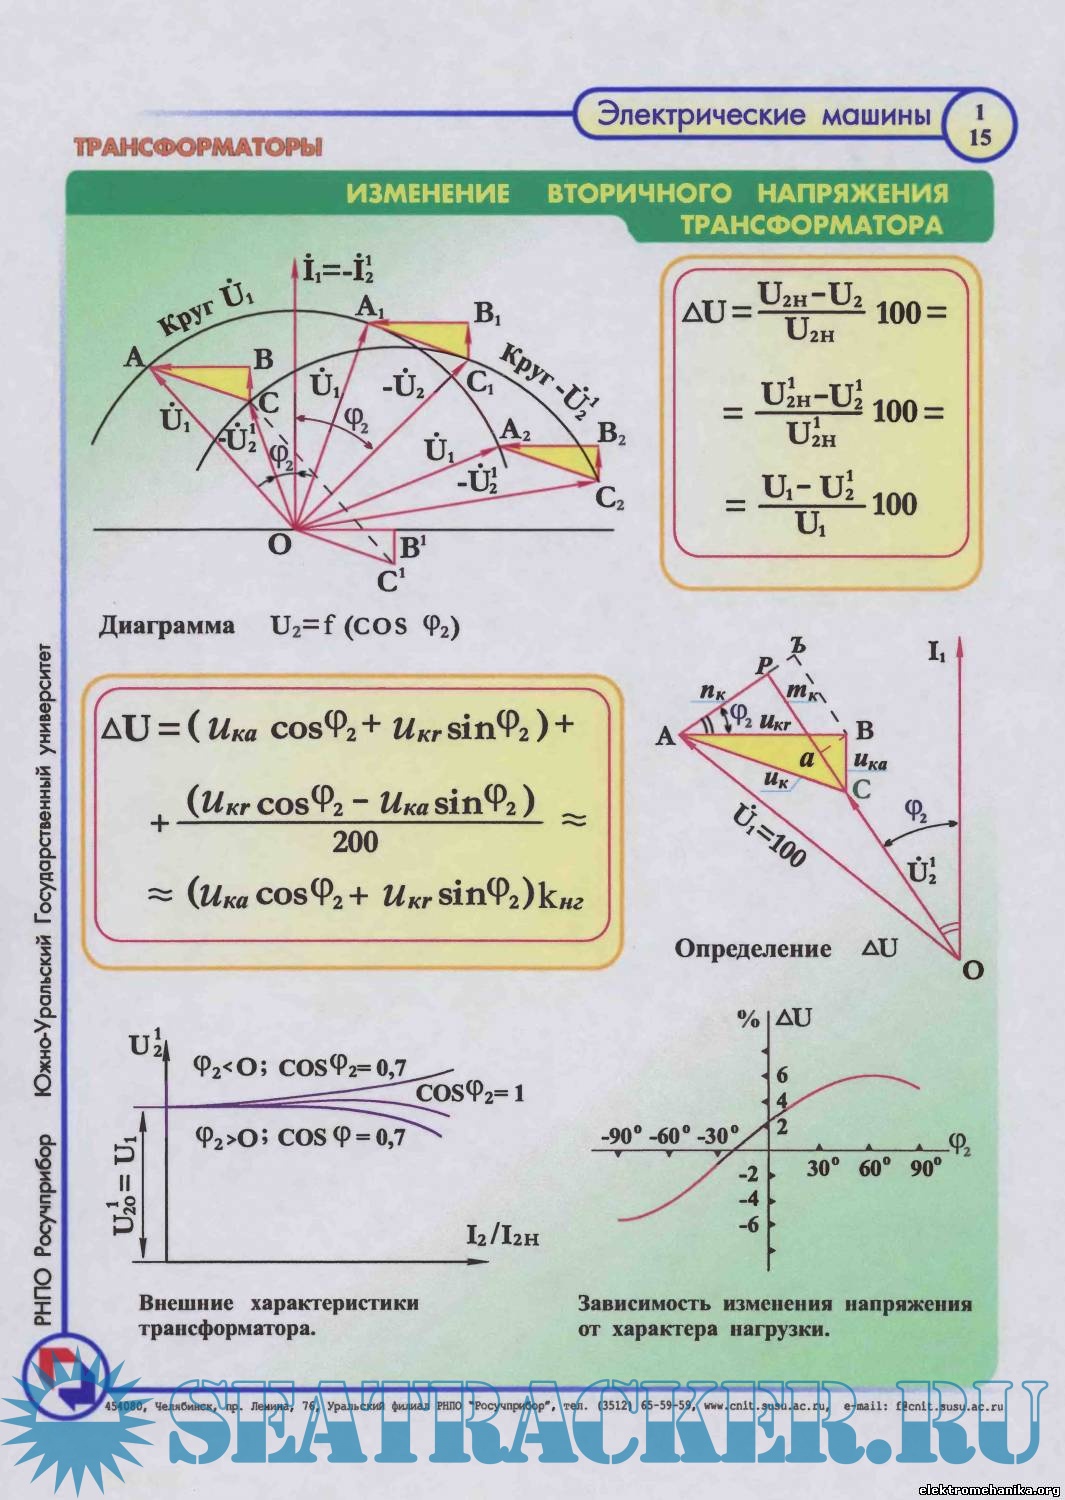 Электрические машины
1
15
ТРАНСФОРМАТОРЫ
ИЗМЕНЕНИЕ ВТОРИЧНОГО НАПРЯЖЕНИЯ
ТРАНСФОРМАТОРА
İ₁=-İ₂¹
Круг U̇₁
A
B
C
U̇₁
-U̇₂¹
φ₂
A₁
B₁
C₁
U̇₁
-U̇₂
φ₂
Круг -U̇₂¹
A₂
B₂
C₂
U̇₁
-U̇₂¹
O
B¹
C¹
Диаграмма U₂=f (COS φ₂)
△U = (U₂н – U₂)/U₂н 100 =
= (U¹₂н – U₂¹)/U¹₂н 100 =
= (U₁ – U₂¹)/U₁ 100
△U = (uка cosφ₂ + uкг sinφ₂) +
+ (uкг cosφ₂ – uка sinφ₂)/200 ≈
≈ (uка cosφ₂ + uкг sinφ₂)kнг
Ъ
P
nк
mк
I₁
φ₂
uкг
A
B
a
uка
uк
C
φ₂
U̇₁=100
U̇₂¹
O
Определение △U
U₂¹
φ₂<O; COSφ₂= 0,7
COSφ₂= 1
φ₂>O; COS φ = 0,7
U¹₂₀ = U₁
I₂/I₂н
Внешние характеристики
трансформатора.
% △U
6
4
2
-90° -60° -30°
φ₂
30° 60° 90°
-2
-4
-6
Зависимость изменения напряжения
от характера нагрузки.
РНПО Росучприбор Южно-Уральский Государственный университет
454080, Челябинск, пр. Ленина, 76, Уральский филиал РНПО "Росучприбор", тел. (3512) 65-59-59, www.cnit.susu.ac.ru, e-mail: f@cnit.susu.ac.ru
SEATRACKER.RU
elektromehanika.org